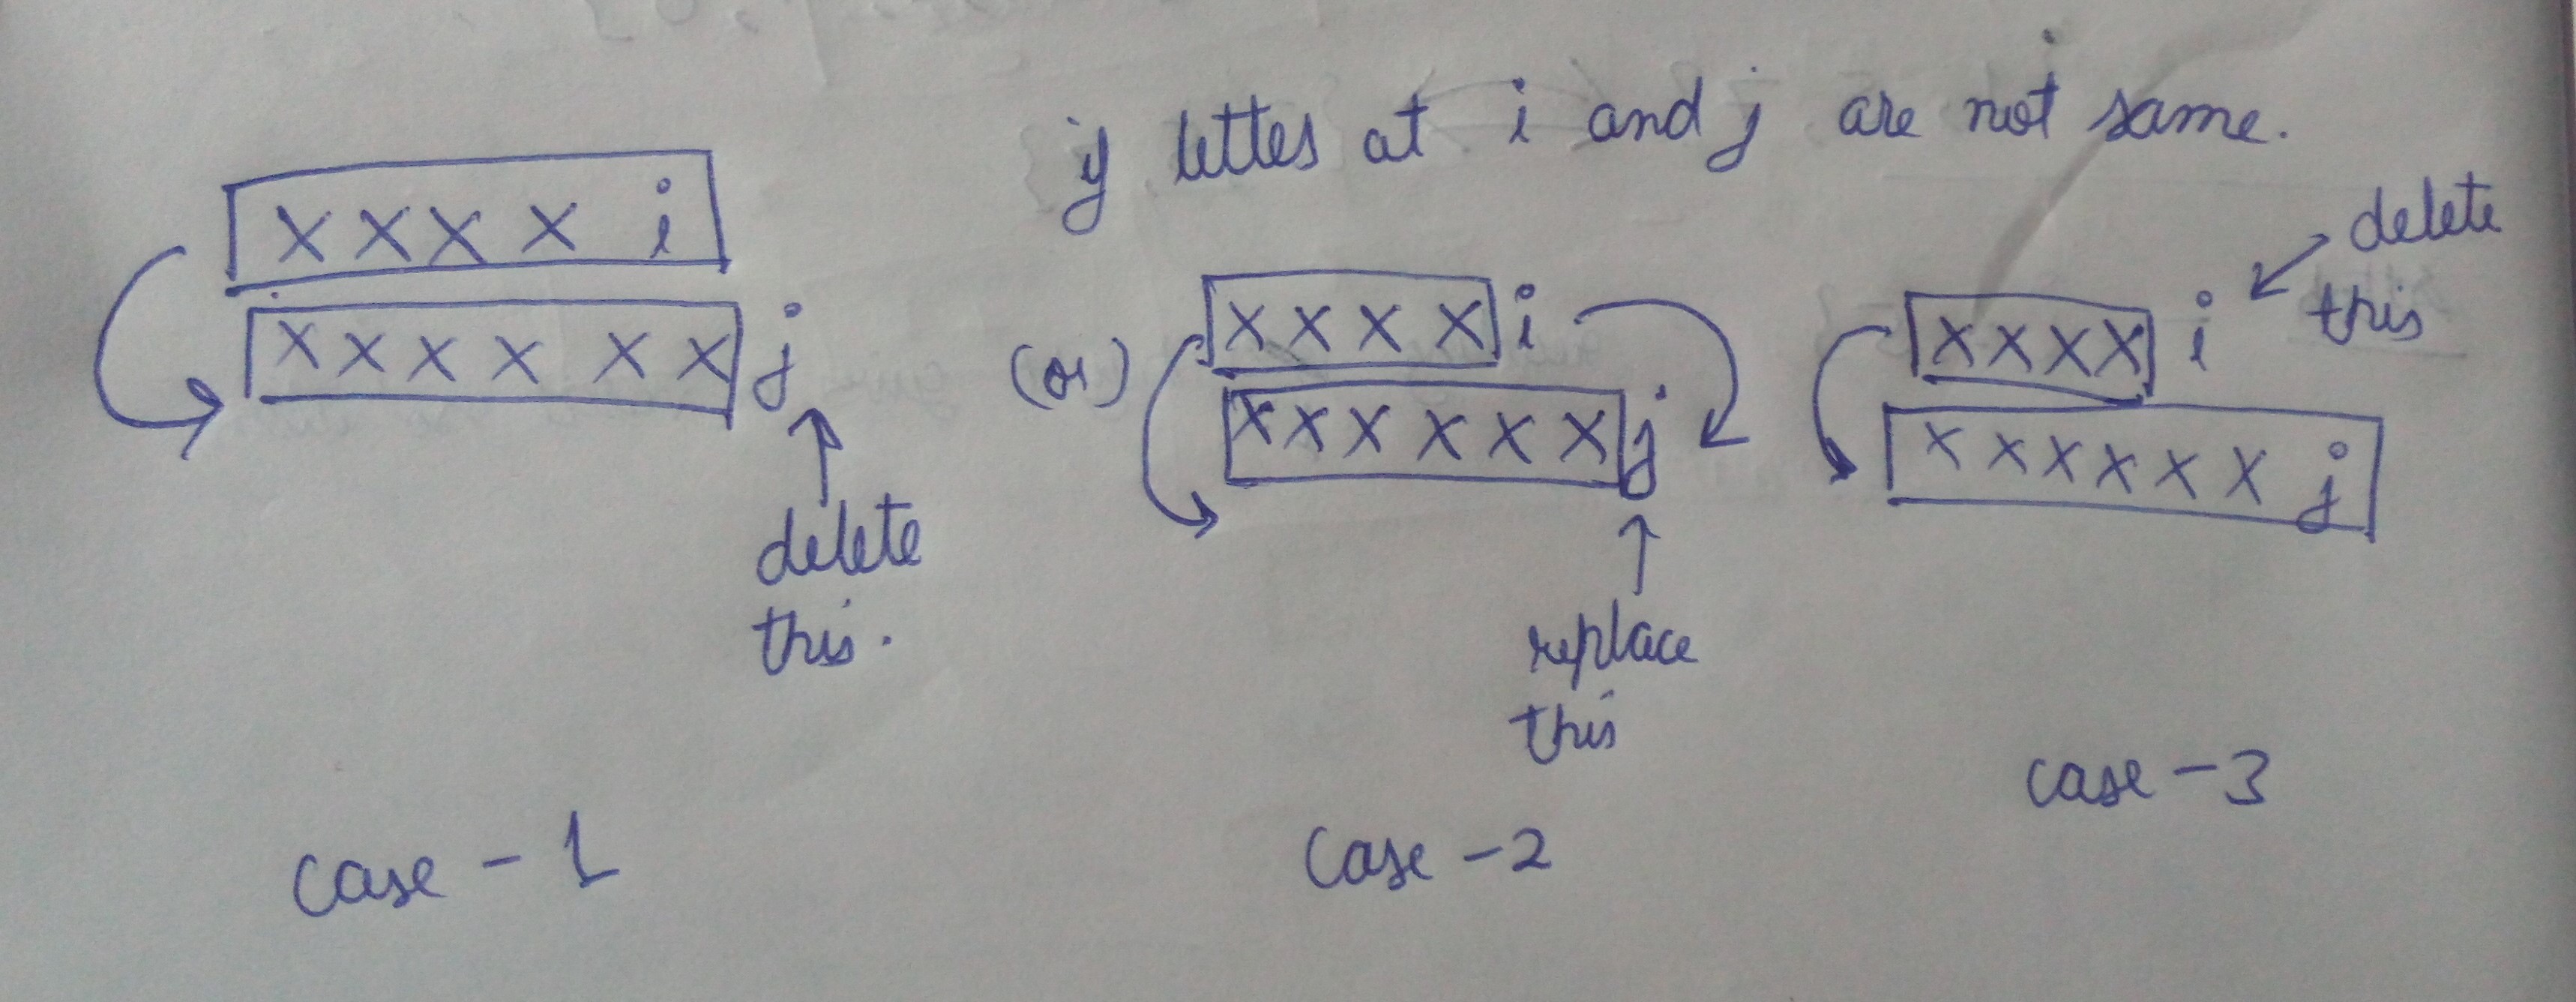 if lettes at i and j are not same.
X X X X i
X X X X X X j
delete
this.
case - 1
(or)
X X X X i
X X X X X X j
replace
this
case - 2
delete
this
X X X X i
X X X X X X j
case - 3